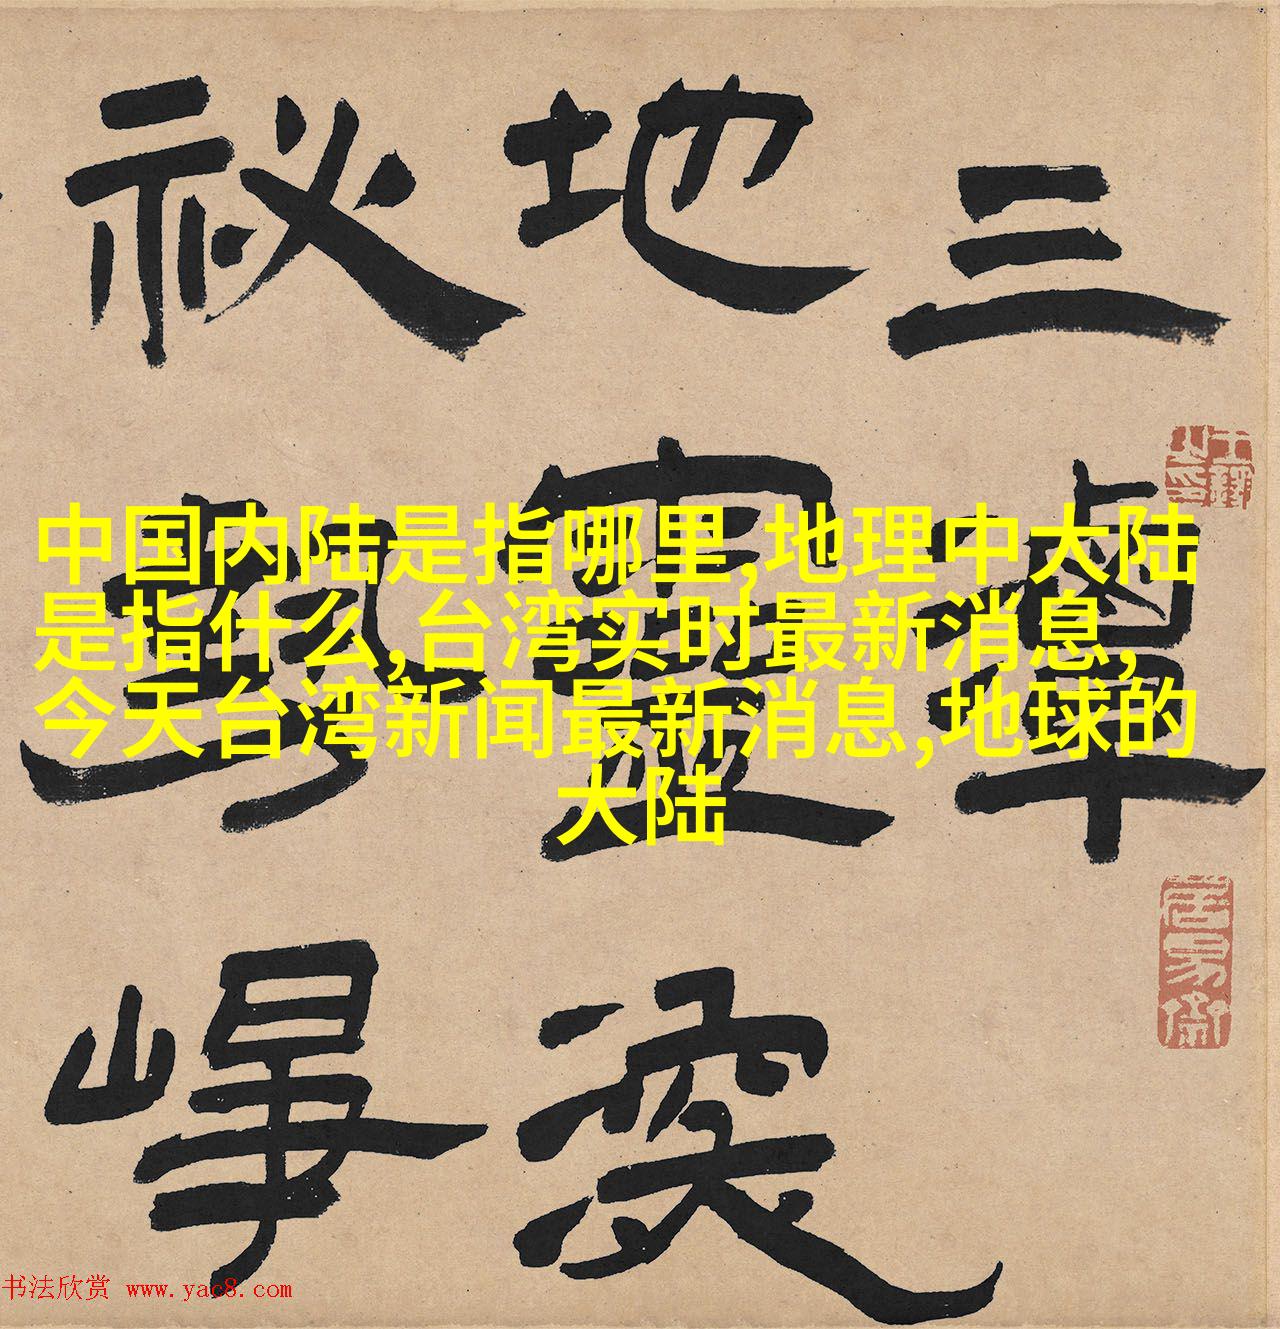 三潭
地靈
祕
中国内陆是指哪里,地理中大陆
是指什么,台湾实时最新消息,
今天台湾新闻最新消息,地球的
大陆
书法欣赏 www.yac8.com